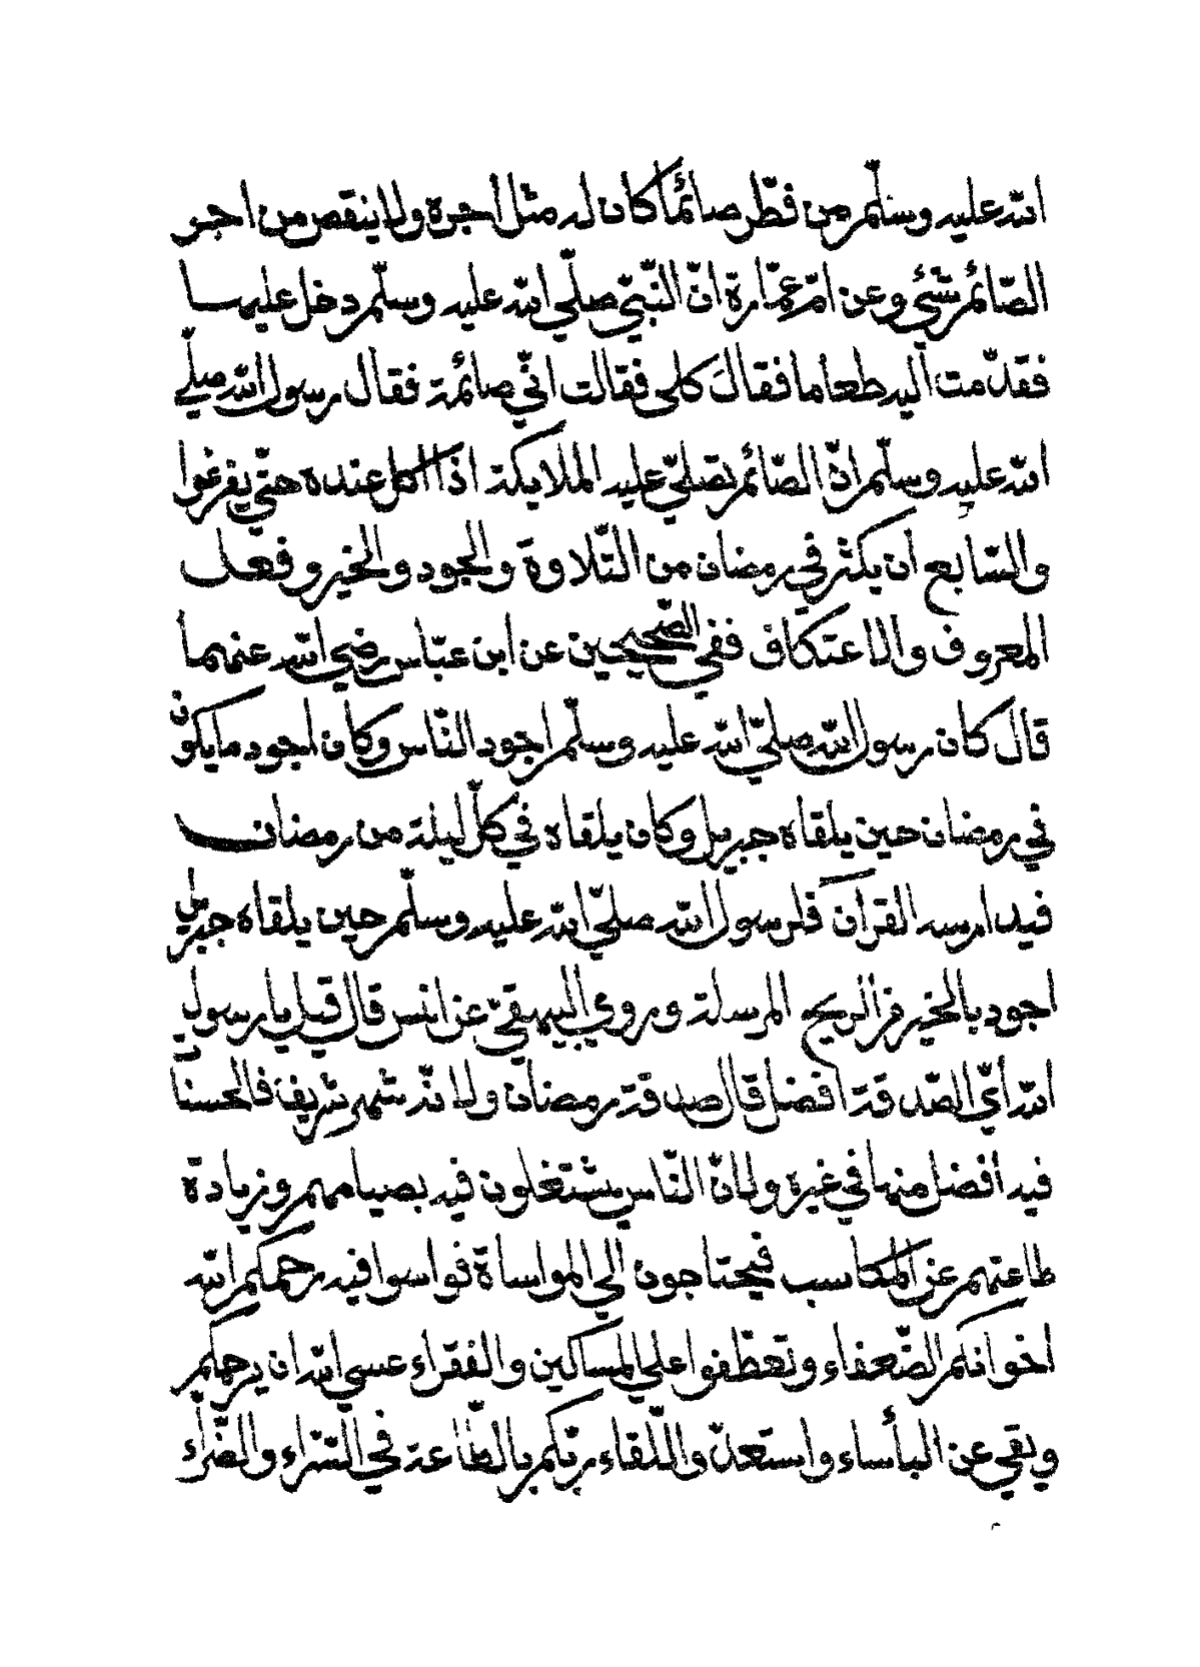 الله عليه وسلّم من فطّر صائمًا كان له مثل أجره ولا ينقص من اجر
الصّائم شئ وعن امّ عمّارة انّ النّبيّ صلّي الله عليه وسلّم دخل عليها
فقدّمت اليه طعاما فقالَ كلى فقالت انّي صائمة فقال رسول الله صلّي
الله عليه وسلّم انّ الصّائم تصلّي عليه الملايكة اذا اكل عنده حتّي يفرغوا
والسّابع أن يكثر في رمضان من التّلاوة والجود والخير وفعل
المعروف والاعتكاف ففي الصّحيحين عن ابن عبّاس رضي الله عنهما
قال كان رسول الله صلّي الله عليه وسلّم اجود النّاس وكان اجود ما يكون
في رمضان حين يلقاه جبريل وكان يلقاه في كلّ ليلة من رمضان
فيدارسه القرآن فلرسول الله صلّي الله عليه وسلّم حين يلقاه جبريل
اجود بالخير من الريح المرسلة وروي البيهقيّ عن انس قال قيل يا رسول
الله أيّ الصّدقة افضل قال صدقة رمضان ولانّه شهر شريف فالحسنا
فيه أفضل منها في غيره ولانّ النّاس يشتغلون فيه بصيامهم وزيادة
طاعتهم عن المكاسب فيحتاجون الي المواساة فواسوا فيه رحمكم الله
اخوانكم الضّعفاء وتعطّفوا علي المساكين والفقراء عسي الله ان يرحمكم
ويقي عن البأساء واستعدّوا للقاء ربّكم بالطّاعة في السّرّاء والضّرّاء